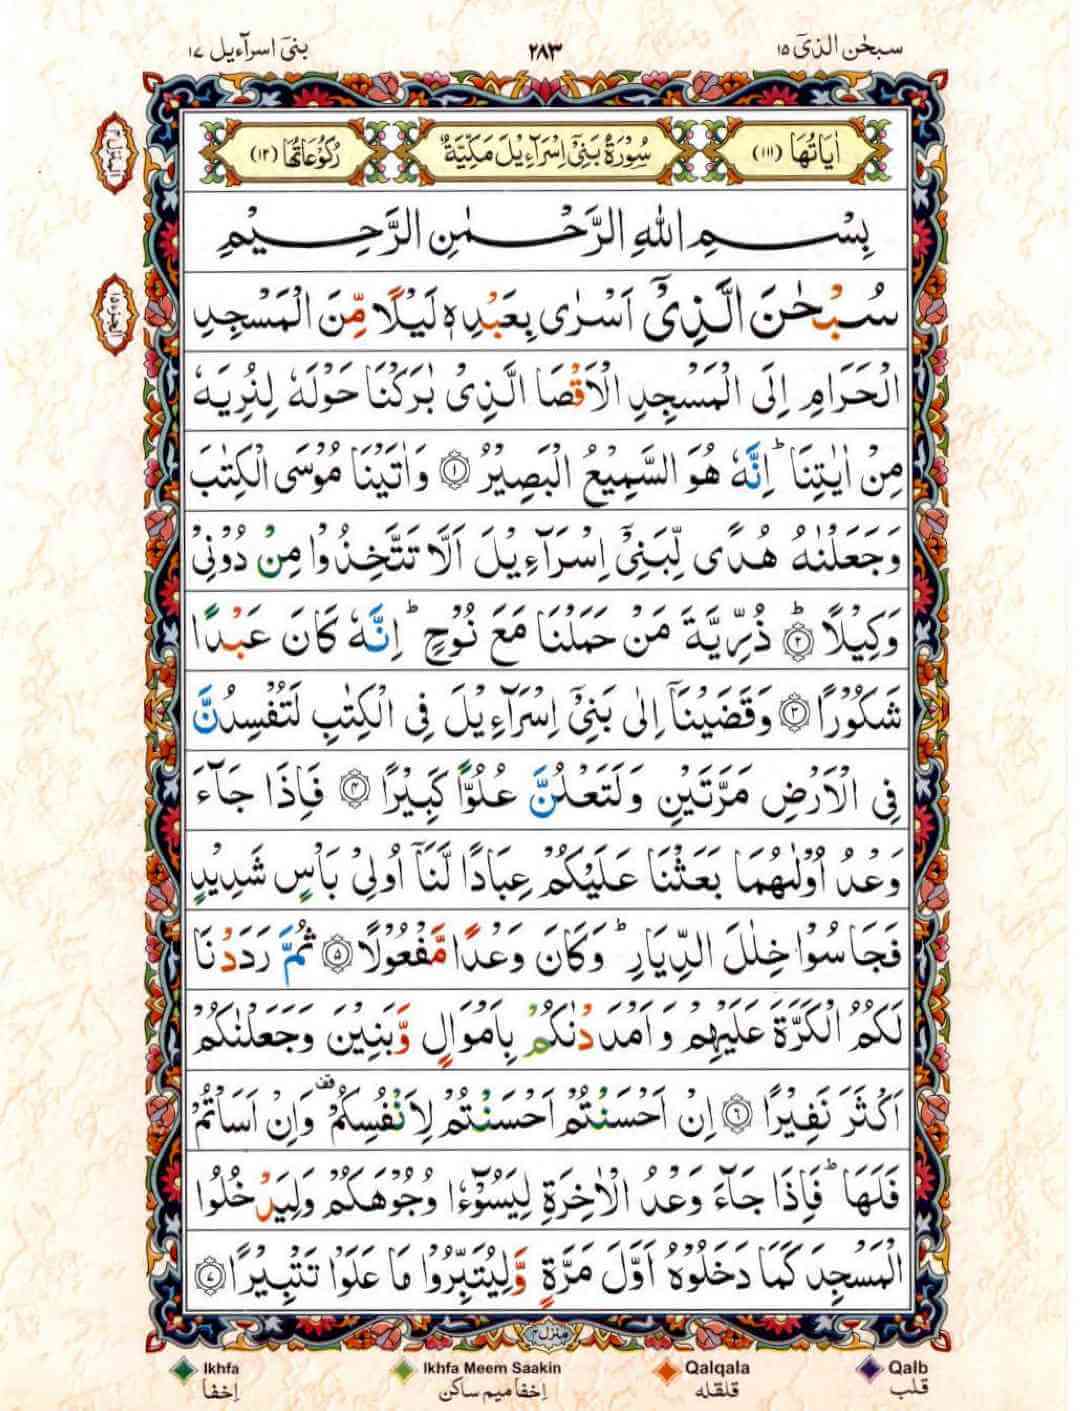 سبحٰن الذیٓ ۱۵
۲۸۳
بنیٓ اسرآءیل ۱۷
اٰیَاتُهَا (۱۱۱)
سُوْرَةُ بَنِیْٓ اِسْرَآءِیْلَ مَكِّیَّةٌ
رُكُوْعَاتُهَا (۱۲)
بِسْمِ اللّٰهِ الرَّحْمٰنِ الرَّحِیْمِ
سُبْحٰنَ الَّذِیْۤ اَسْرٰی بِعَبْدِهٖ لَیْلًا مِّنَ الْمَسْجِدِ
الْحَرَامِ اِلَی الْمَسْجِدِ الْاَقْصَا الَّذِیْ بٰرَكْنَا حَوْلَهٗ لِنُرِیَهٗ
مِنْ اٰیٰتِنَا ؕ اِنَّهٗ هُوَ السَّمِیْعُ الْبَصِیْرُ ۱ وَاٰتَیْنَا مُوْسَی الْكِتٰبَ
وَجَعَلْنٰهُ هُدًی لِّبَنِیْۤ اِسْرَآءِیْلَ اَلَّا تَتَّخِذُوْا مِنْ دُوْنِیْ
وَكِیْلًا ؕ ۲ ذُرِّیَّةَ مَنْ حَمَلْنَا مَعَ نُوْحٍ ؕ اِنَّهٗ كَانَ عَبْدًا
شَكُوْرًا ۳ وَقَضَیْنَاۤ اِلٰی بَنِیْۤ اِسْرَآءِیْلَ فِی الْكِتٰبِ لَتُفْسِدُنَّ
فِی الْاَرْضِ مَرَّتَیْنِ وَلَتَعْلُنَّ عُلُوًّا كَبِیْرًا ۴ فَاِذَا جَآءَ
وَعْدُ اُوْلٰىهُمَا بَعَثْنَا عَلَیْكُمْ عِبَادًا لَّنَاۤ اُولِیْ بَاْسٍ شَدِیْدٍ
فَجَاسُوْا خِلٰلَ الدِّیَارِ ؕ وَكَانَ وَعْدًا مَّفْعُوْلًا ۵ ثُمَّ رَدَدْنَا
لَكُمُ الْكَرَّةَ عَلَیْهِمْ وَاَمْدَدْنٰكُمْ بِاَمْوَالٍ وَّبَنِیْنَ وَجَعَلْنٰكُمْ
اَكْثَرَ نَفِیْرًا ۶ اِنْ اَحْسَنْتُمْ اَحْسَنْتُمْ لِاَنْفُسِكُمْ قف وَاِنْ اَسَاْتُمْ
فَلَهَا ؕ فَاِذَا جَآءَ وَعْدُ الْاٰخِرَةِ لِیَسُوْٓءٗا وُجُوْهَكُمْ وَلِیَدْخُلُوا
الْمَسْجِدَ كَمَا دَخَلُوْهُ اَوَّلَ مَرَّةٍ وَّلِیُتَبِّرُوْا مَا عَلَوْا تَتْبِیْرًا ۷
منزل ۴
Ikhfa
Ikhfa Meem Saakin
Qalqala
Qalb
اِخفا
اِخفا میم ساکن
قلقله
قلب